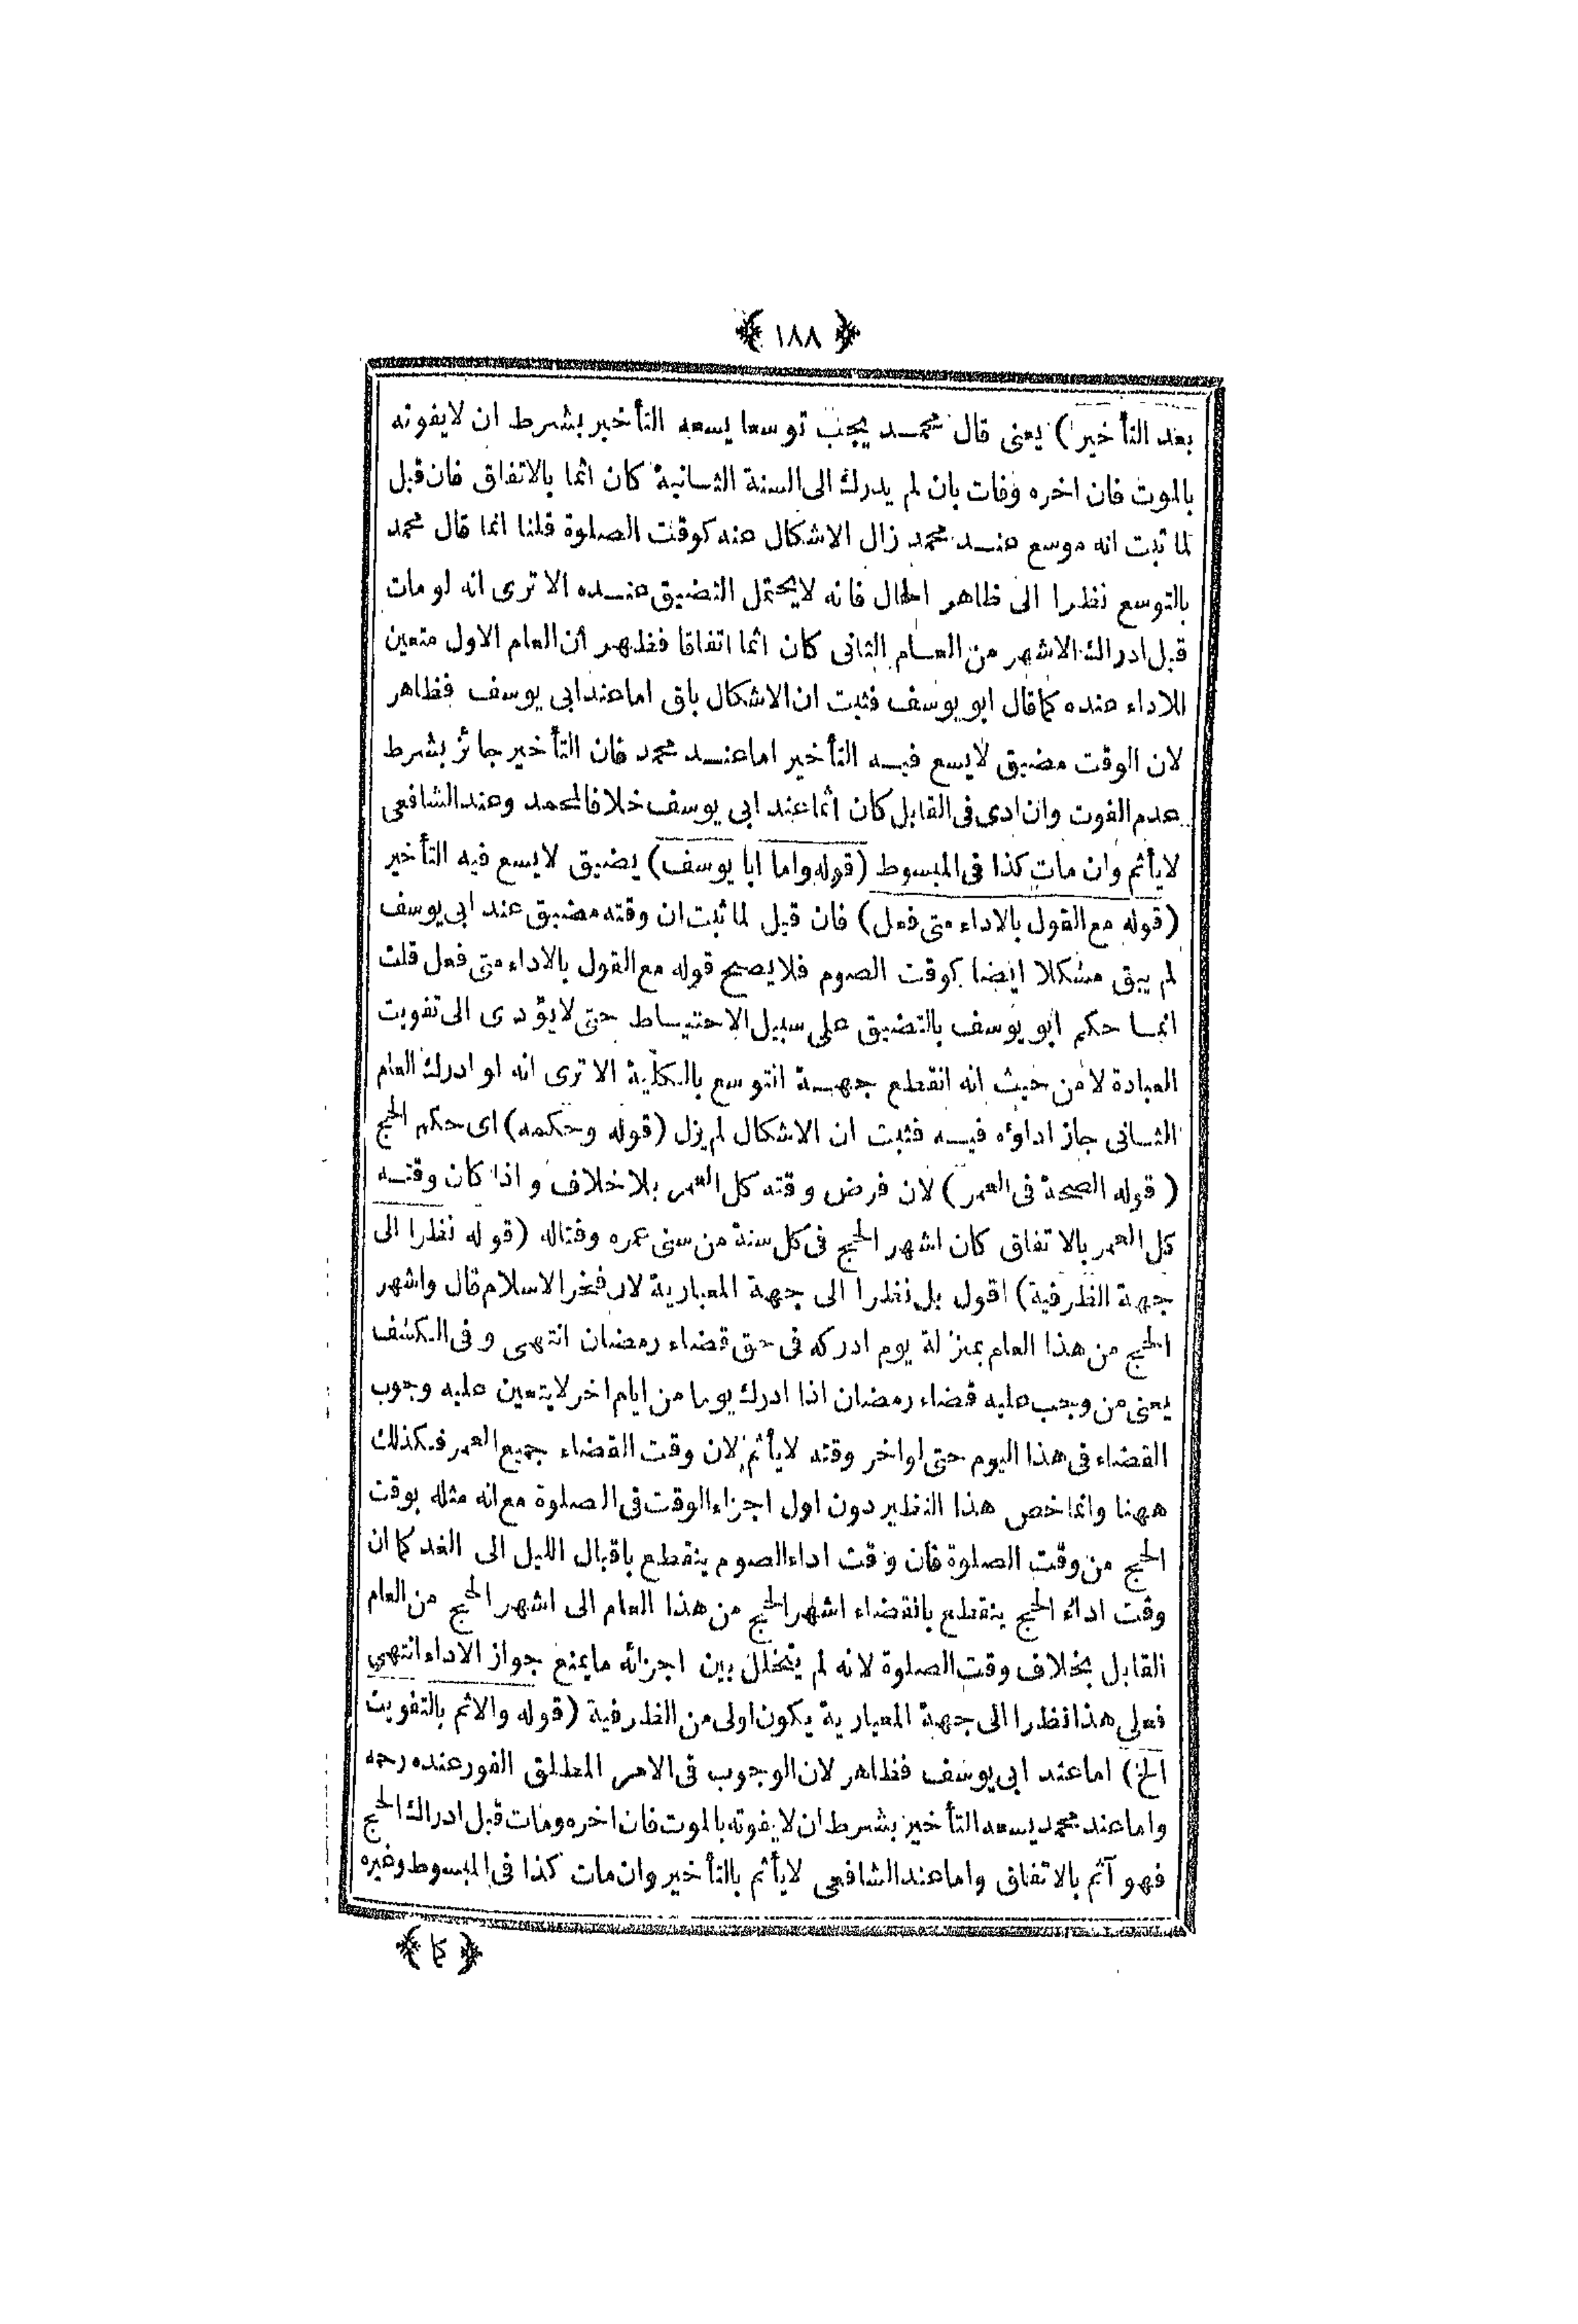 ﴿ ١٨٨ ﴾
بعد التأخير) يعنى قال محمد يجب توسعا يسعه التأخير بشرط ان لايفوته
بالموت فان اخره وفات بان لم يدرك الى السنة الثانية كان اثما بالاتفاق فان قيل
لما ثبت انه موسع عند محمد زال الاشكال عنه كوقت الصلوة قلنا انما قال محمد
بالتوسع نظرا الى ظاهر الحال فانه لايحتمل التضيق عنده الا ترى انه لو مات
قبل ادراك الاشهر من العام الثانى كان اثما اتفاقا فظهر أن العام الاول متعين
للاداء عنده كما قال ابو يوسف فثبت ان الاشكال باق اما عند ابى يوسف فظاهر
لان الوقت مضيق لايسع فيه التأخير اما عند محمد فان التأخير جائز بشرط
عدم الفوت وان ادى فى القابل كان أثما عند ابى يوسف خلافا لمحمد وعند الشافعى
لايأثم وان مات كذا فى المبسوط (قوله واما ابا يوسف) يضيق لايسع فيه التأخير
(قوله مع القول بالاداء متى فعل) فان قيل لما ثبت ان وقته مضيق عند ابى يوسف
لم يبق مشكلا ايضا كوقت الصوم فلا يصح قوله مع القول بالاداء متى فعل قلت
انما حكم ابو يوسف بالتضيق على سبيل الاحتياط حتى لايؤدى الى تفويت
العبادة لا من حيث انه انقطع جهة التوسع بالكلية الا ترى انه لو ادرك العام
الثانى جاز اداؤه فيه فثبت ان الاشكال لم يزل (قوله وحكمه) اى حكم الحج
(قوله الصحة فى العمر) لان فرض وقته كل العمر بلا خلاف واذا كان وقته
كل العمر بالاتفاق كان اشهر الحج فى كل سنة من سنى عمره وقتاله (قوله نظرا الى
جهة الظرفية) اقول بل نظرا الى جهة المعيارية لان فخر الاسلام قال واشهر
الحج من هذا العام بمنزلة يوم ادركه فى حق قضاء رمضان انتهى وفى الكشف
يعنى من وجب عليه قضاء رمضان اذا ادرك يوما من ايام اخر لايتعين عليه وجوب
القضاء فى هذا اليوم حتى لو اخر وقته لايأثم لان وقت القضاء جميع العمر فكذلك
ههنا وانما خص هذا النظير دون اول اجزاء الوقت فى الصلوة مع انه مثله بوقت
الحج من وقت الصلوة فان وقت اداء الصوم ينقطع باقبال الليل الى الغد كما ان
وقت اداء الحج ينقطع بانقضاء اشهر الحج من هذا العام الى اشهر الحج من العام
القابل بخلاف وقت الصلوة لانه لم يتخلل بين اجزائه مايمنع جواز الاداء انتهى
فعلى هذا نظرا الى جهة المعيارية يكون اولى من الظرفية (قوله والاثم بالتفويت
الخ) اما عند ابى يوسف فظاهر لان الوجوب فى الامر المطلق الفور عنده رحمه
واما عند محمد يسعه التأخير بشرط ان لايفوته بالموت فان اخره ومات قبل ادراك الحج
فهو آثم بالاتفاق واما عند الشافعى لايأثم بالتأخير وان مات كذا فى المبسوط وغيره
﴿ كما ﴾